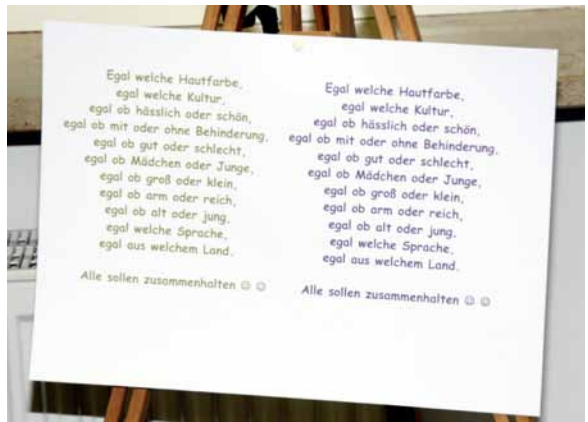 Egal welche Hautfarbe,
egal welche Kultur,
egal ob hässlich oder schön,
egal ob mit oder ohne Behinderung,
egal ob gut oder schlecht,
egal ob Mädchen oder Junge,
egal ob groß oder klein,
egal ob arm oder reich,
egal ob alt oder jung,
egal welche Sprache,
egal aus welchem Land.
Alle sollen zusammenhalten ☺ ☺
Egal welche Hautfarbe,
egal welche Kultur,
egal ob hässlich oder schön,
egal ob mit oder ohne Behinderung,
egal ob gut oder schlecht,
egal ob Mädchen oder Junge,
egal ob groß oder klein,
egal ob arm oder reich,
egal ob alt oder jung,
egal welche Sprache,
egal aus welchem Land.
Alle sollen zusammenhalten ☺ ☺